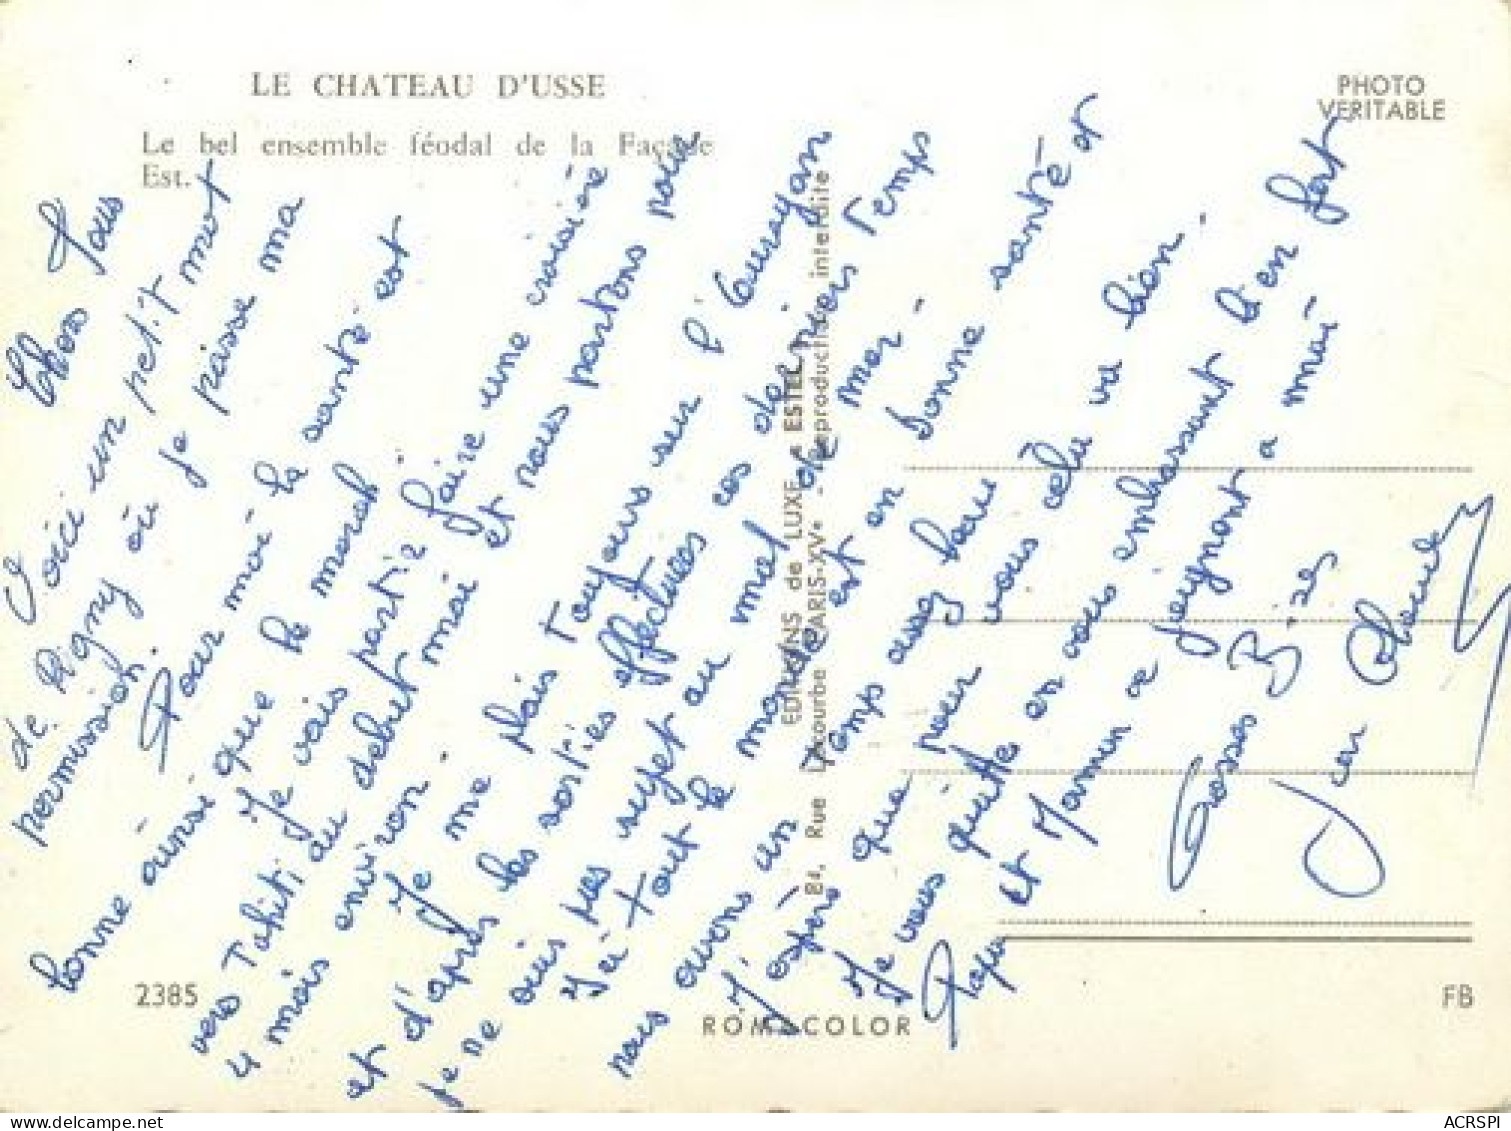 LE CHATEAU D'USSE
Le bel ensemble féodal de la Façade
Est.
PHOTO
VERITABLE
Chers Tous
Voici un petit mot
de Rigny où je passe ma
permission.
Pour moi la santé est
bonne ainsi que le moral.
Je vais partir faire une croisière
vers Tahiti au debut mai et nous partons pour
4 mois environ.
Je me plais toujours sur l'
et d'après les sorties effectuées ces derniers temps
je ne suis pas sujet au mal de mer.
Ici tout le monde est en bonne santé et
nous avons un temps assez beau
J'espère que pour vous cela va bien.
Je vous quitte en vous embrassant bien fort
Papa et Maman se joignent a moi
Grosses Bises
Jean
EDITIONS de LUXE "ESTEL"
84, Rue Lecourbe PARIS-XVe - Reproduction interdite
2385
ROMACOLOR
FB
delcampe.net
ACRSPI